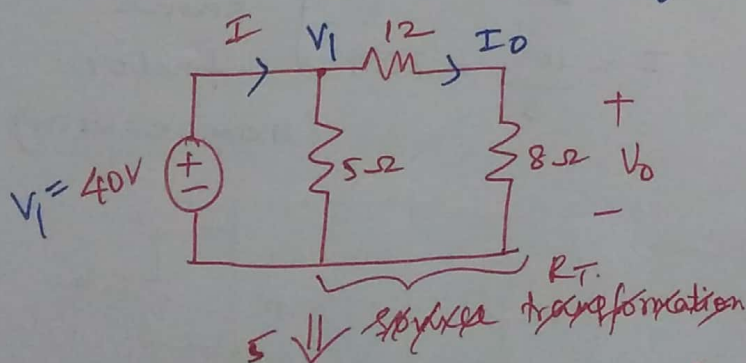 I V1 12 I0
+
V1 = 40V + 5Ω 8Ω V0
-
-
RT.
5 ⇓ source transformation